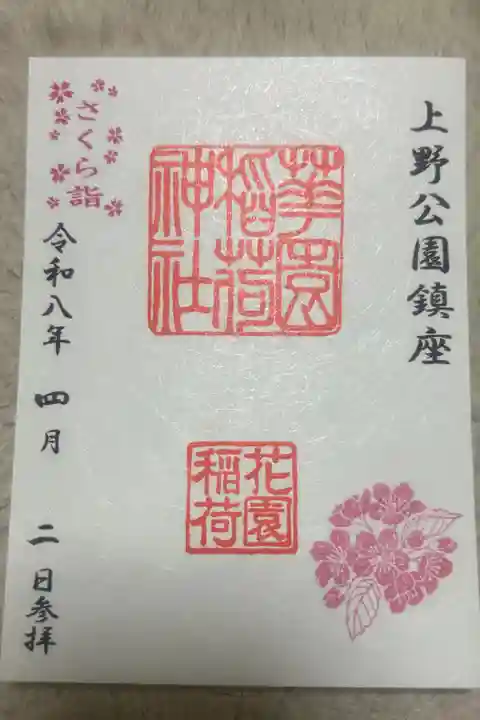 上野公園鎮座
華園
稲荷
神社
花園
稲荷
さくら詣
令和八年 四月 二日参拝